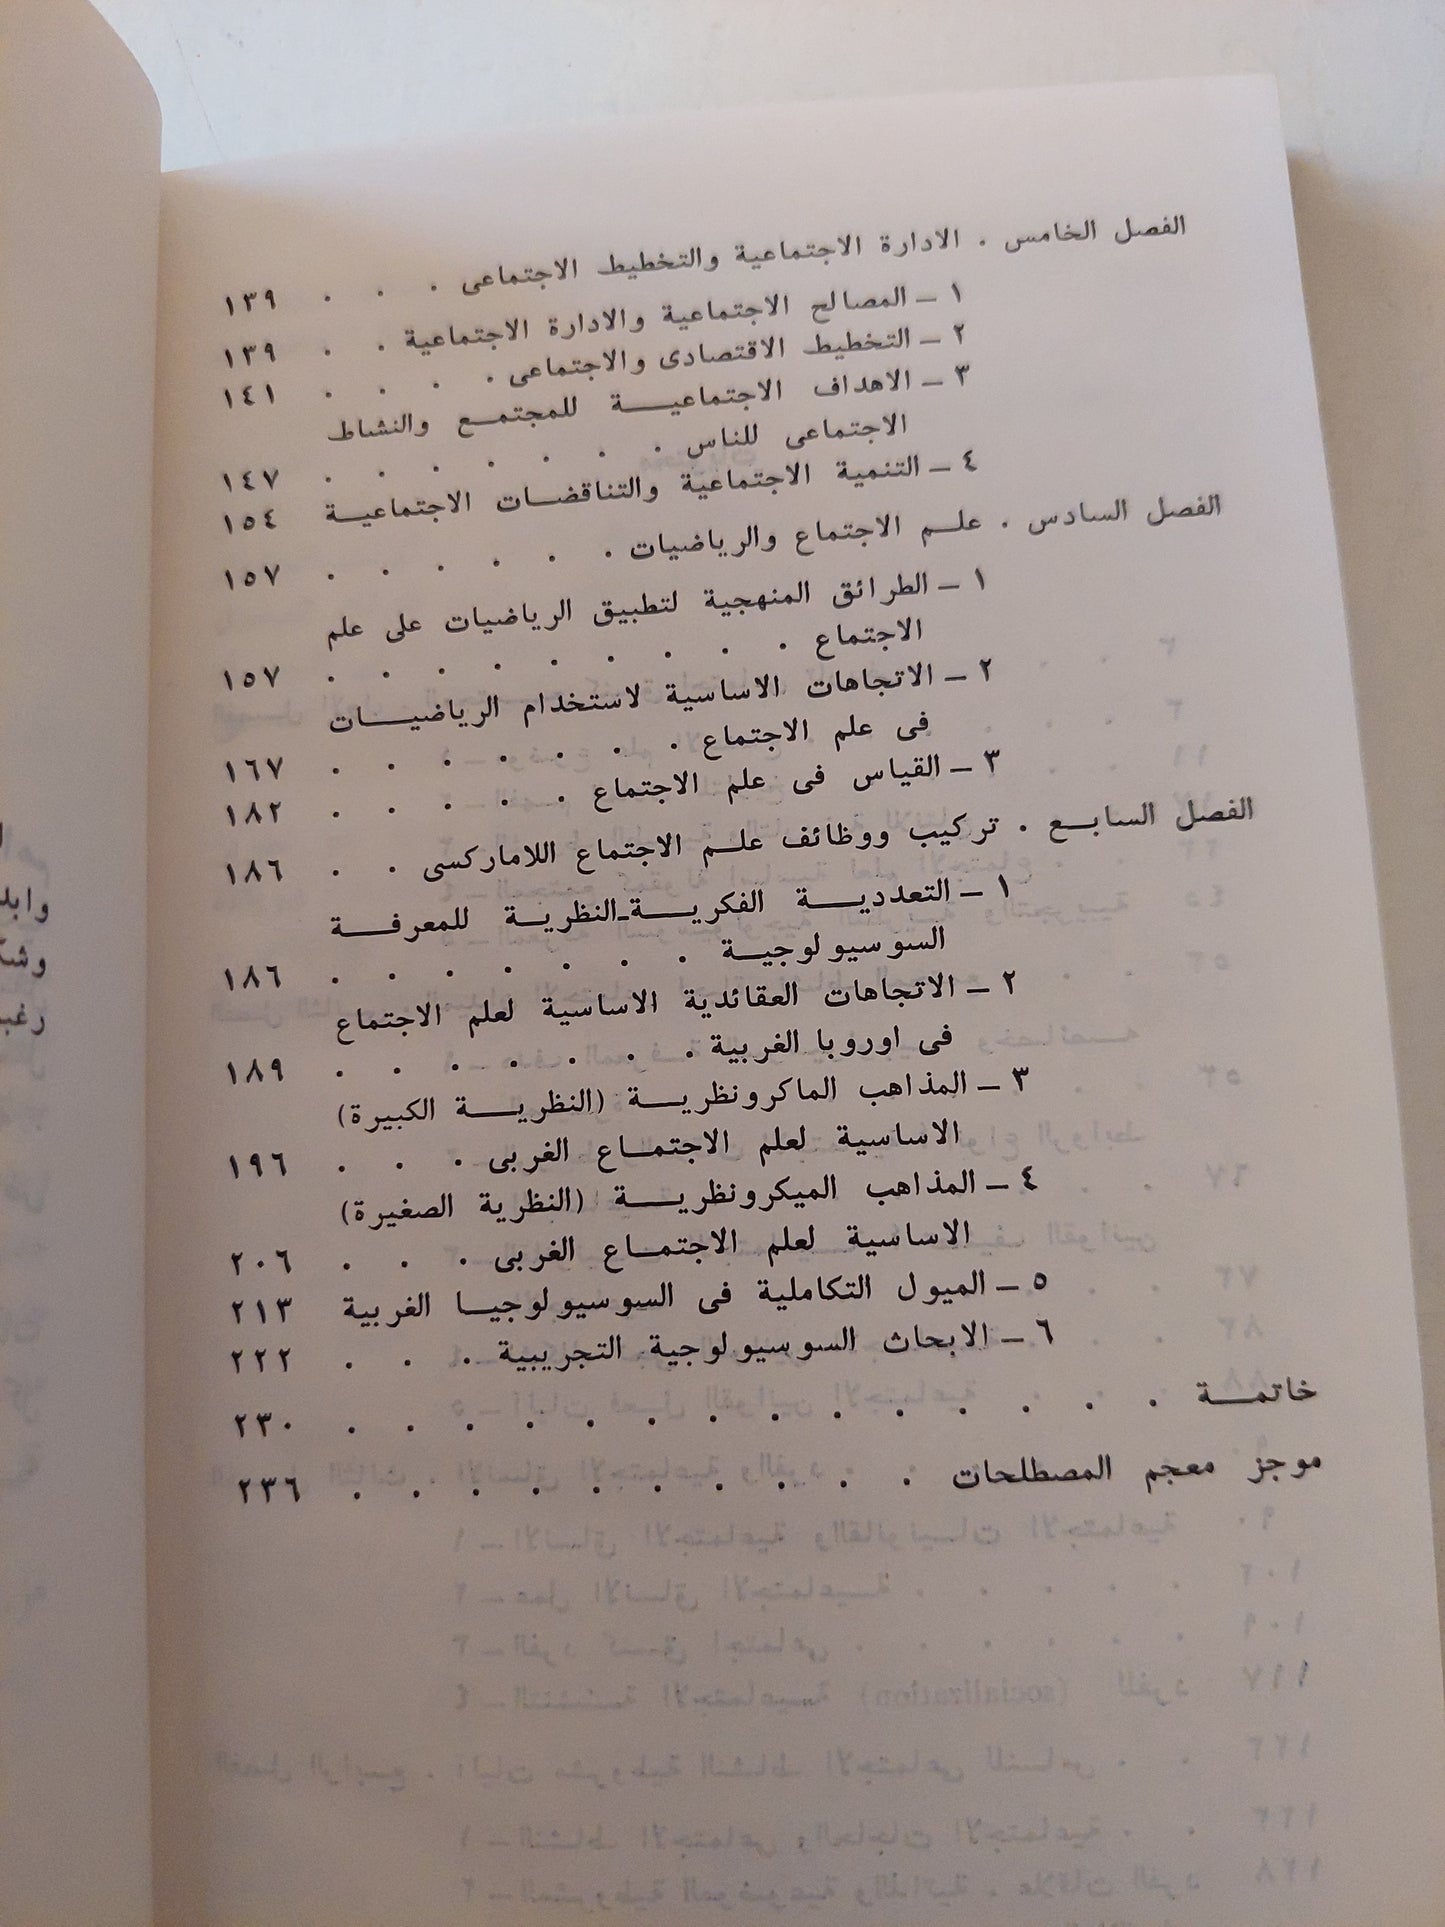 الفصل الخامس . الادارة الاجتماعية والتخطيط الاجتماعى . . . ١٣٩
١ – المصالح الاجتماعية والادارة الاجتماعية . . ١٣٩
٢ – التخطيط الاقتصادى والاجتماعى . . . . ١٤١
٣ – الاهداف الاجتماعيـــة للمجتمـــع والنشاط
الاجتماعى للناس . . . . . . . ١٤٧
٤ – التنمية الاجتماعية والتناقضـات الاجتماعيـة ١٥٤
الفصل السادس . علـم الاجتماع والرياضيات . . . . . . ١٥٧
١ – الطرائق المنهجية لتطبيق الرياضيات على علم
الاجتماع . . . . . . . . . ١٥٧
٢ – الاتجاهات الاساسية لاستخدام الرياضيـــات
فى علم الاجتماع . . . . . . . ١٦٧
٣ – القياس فى علم الاجتماع . . . . . ١٨٢
الفصل السابـع . تركيب ووظائف علـم الاجتماع اللاماركسى . . ١٨٦
١ – التعدديـــة الفكريـــة-النظرية للمعرفـــة
السوسيولوجيـة . . . . . . . ١٨٦
٢ – الاتجاهات العقائدية الاساسية لعلم الاجتماع
فى اوروبا الغربية . . . . . . . ١٨٩
٣ – المذاهب الماكرونظريـــة (النظريـــة الكبيرة)
الاساسية لعلم الاجتمـاع الغربى . . . ١٩٦
٤ – المذاهب الميكرونظريـــة (النظرية الصغيرة)
الاساسية لعلم الاجتمـاع الغربى . . . ٢٠٦
٥ – الميول التكاملية فى السوسيولوجيـا الغربية ٢١٣
٦ – الابحاث السوسيولوجية التجريبية . . . ٢٢٢
خاتمـــة . . . . . . . . . . . . . . ٢٣٠
موجز معجم المصطلحات . . . . . . . . . . ٢٣٦